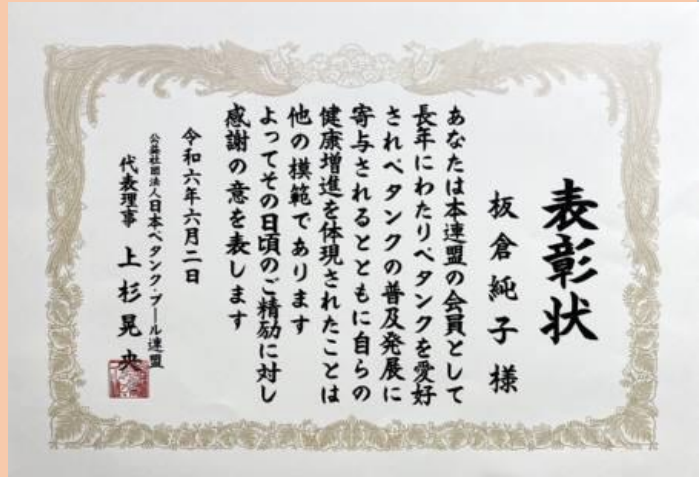 表彰状
板倉純子様
あなたは本連盟の会員として
長年にわたりペタンクを愛好
されペタンクの普及発展に
寄与されるとともに自らの
健康増進を体現されたことは
他の模範であります
よってその日頃のご精励に対し
感謝の意を表します
令和六年六月二日
公益社団法人日本ペタンク・ブール連盟
代表理事 上杉晃央